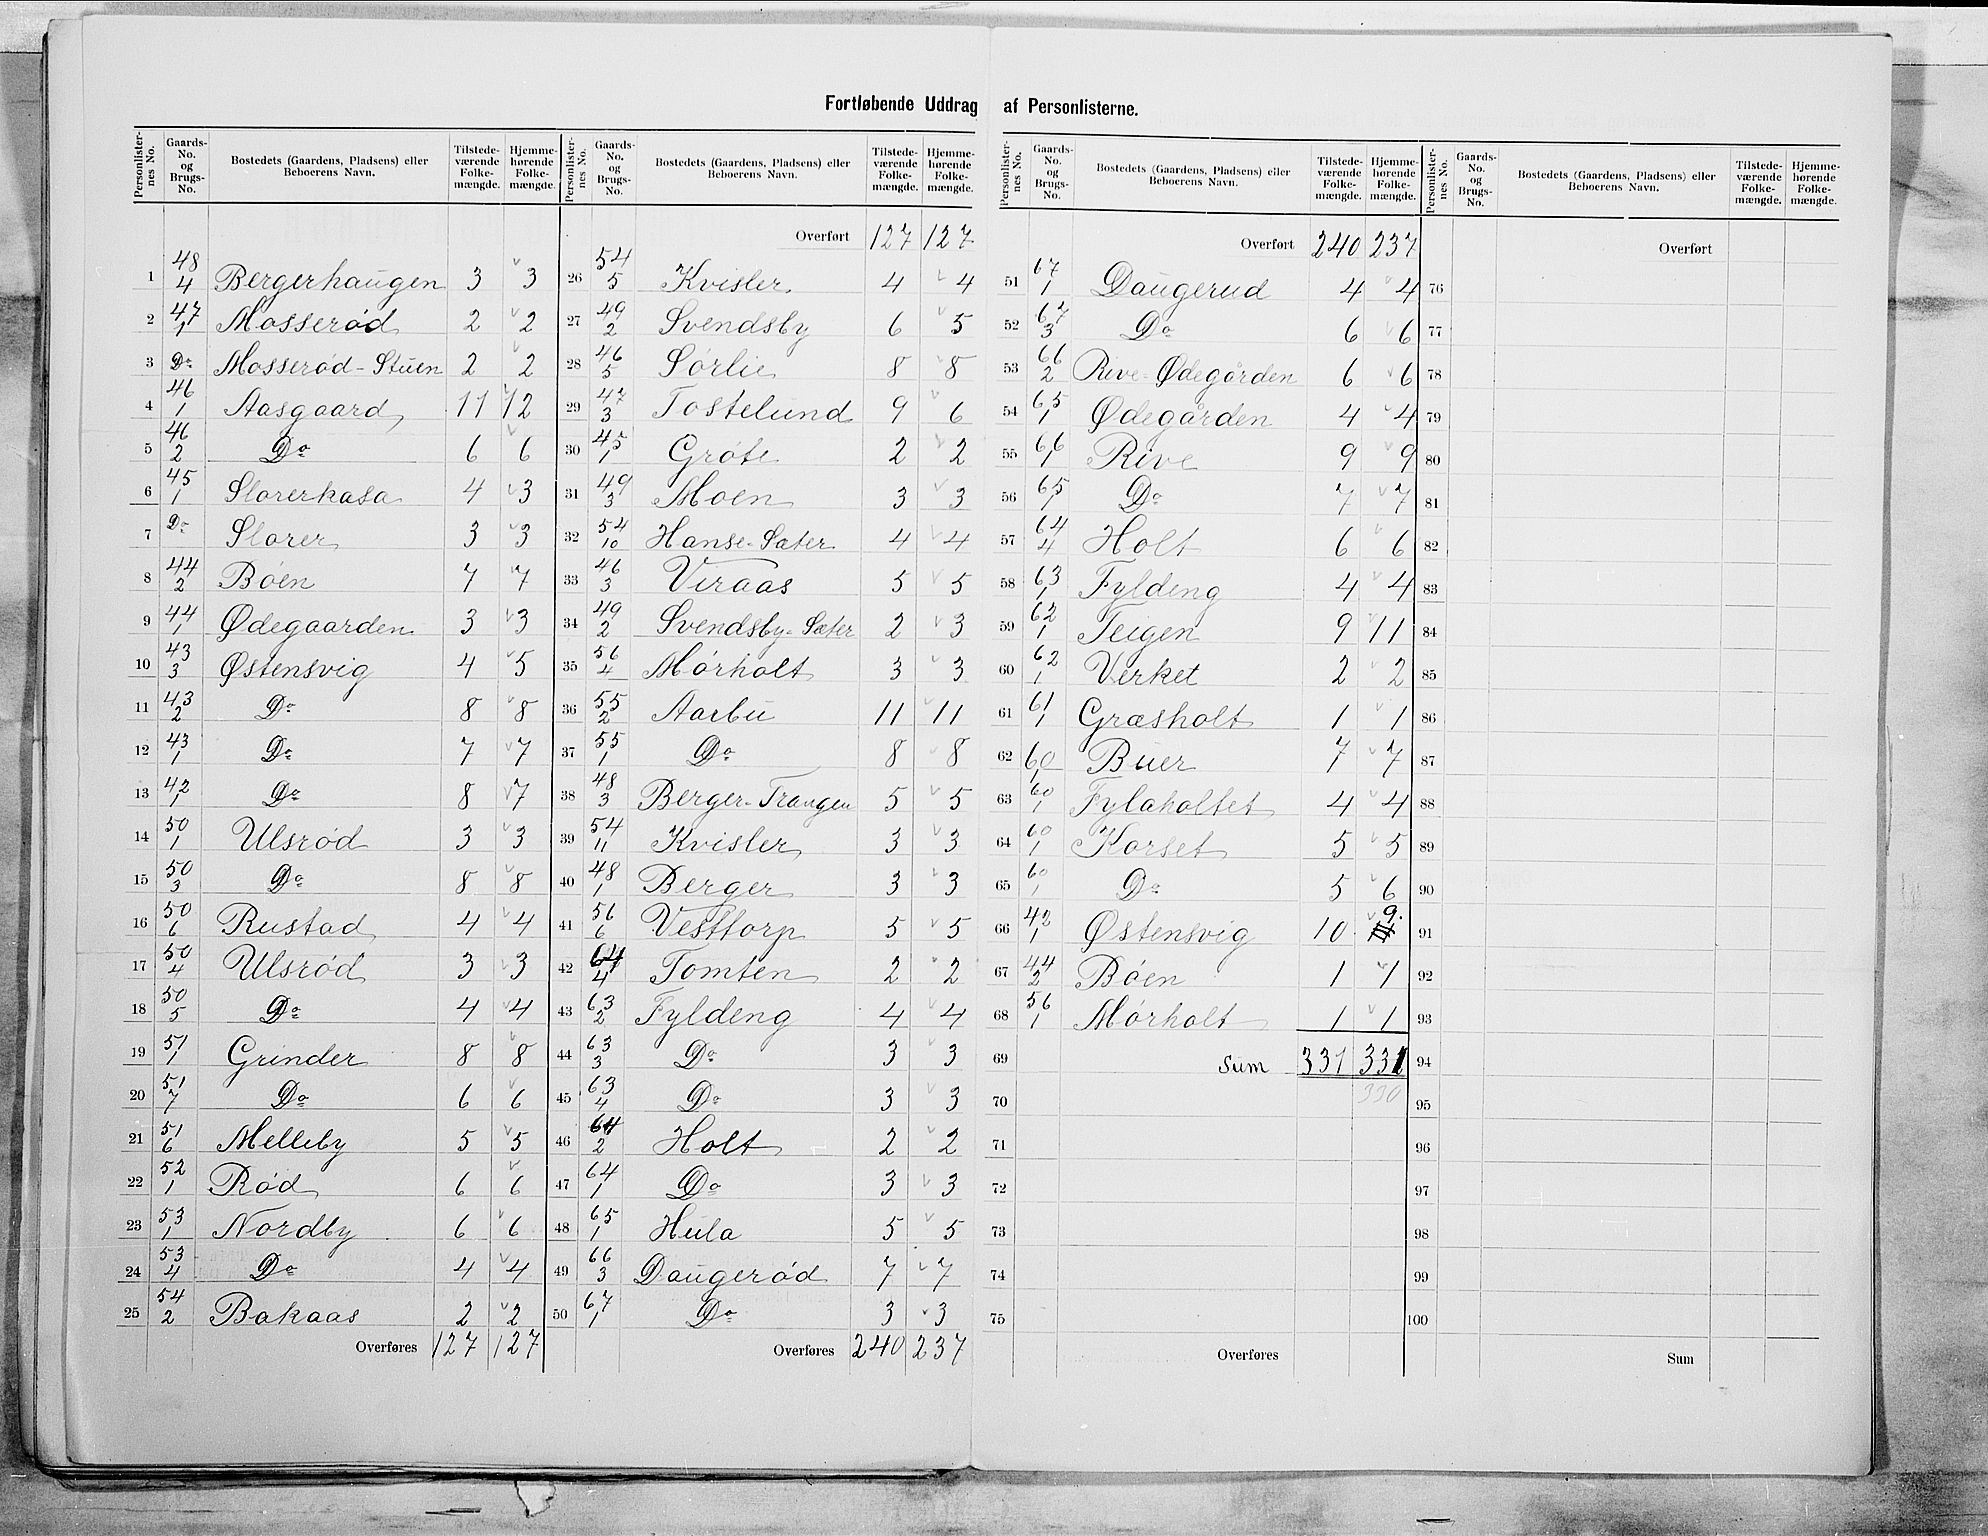 Fortløbende Uddrag af Personlisterne.
Personlister-nes No. | Gaards-No. og Brugs-No. | Bostedets (Gaardens, Pladsens) eller Beboerens Navn. | Tilstede-værende Folke-mængde. | Hjemme-hørende Folke-mængde.
1 48/4 Bergerhaugen 3 3
2 47/1 Mosserød 2 2
3 Do Mosserød-Stuen 2 2
4 46/1 Aasgaard 11 12
5 46/2 Do 6 6
6 45/1 Slorerkasa 4 3
7 Do Slorer 3 3
8 44/2 Bøen 7 7
9 44/1 Ødegaarden 3 3
10 43/3 Østensvig 4 5
11 43/2 Do 8 8
12 43/1 Do 7 7
13 42/1 Do 8 7
14 50/1 Ulsrød 3 3
15 50/3 Do 8 8
16 50/6 Rustad 4 4
17 50/4 Ulsrød 3 3
18 50/5 Do 4 4
19 51/1 Grinder 8 8
20 51/7 Do 6 6
21 51/6 Melleby 5 5
22 52/1 Rød 6 6
23 53/1 Nordby 6 6
24 53/4 Do 4 4
25 54/2 Bakaas 2 2
Overføres 127 127
Personlister-nes No. | Gaards-No. og Brugs-No. | Bostedets (Gaardens, Pladsens) eller Beboerens Navn. | Tilstede-værende Folke-mængde. | Hjemme-hørende Folke-mængde.
Overført 127 127
26 54/5 Kvisler 4 4
27 49/2 Svendsby 6 5
28 46/5 Sørlie 8 8
29 47/3 Tostelund 9 6
30 45/1 Grøte 2 2
31 49/3 Moen 3 3
32 54/10 Hanse-Sæter 4 4
33 46/3 Viraas 5 5
34 49/2 Svendsby-Sæter 2 3
35 56/4 Mørholt 3 3
36 55/2 Aarbu 11 11
37 55/1 Do 8 8
38 48/3 Berger-Trangen 5 5
39 54/11 Kvisler 3 3
40 48/1 Berger 3 3
41 56/6 Vesttorp 5 5
42 64/4 Tomten 2 2
43 63/2 Fyldeng 4 4
44 63/3 Do 3 3
45 63/4 Do 3 3
46 64/2 Holt 2 2
47 64/1 Do 3 3
48 65/1 Hula 5 5
49 66/3 Daugerød 7 7
50 67/1 Do 3 3
Overføres 240 237
Personlister-nes No. | Gaards-No. og Brugs-No. | Bostedets (Gaardens, Pladsens) eller Beboerens Navn. | Tilstede-værende Folke-mængde. | Hjemme-hørende Folke-mængde.
Overført 240 237
51 67/1 Daugerud 4 4
52 67/3 Do 6 6
53 66/2 Rive-Ødegården 6 6
54 65/1 Ødegården 4 4
55 66/1 Rive 9 9
56 65/1 Do 7 7
57 64/4 Holt 6 6
58 63/1 Fyldeng 4 4
59 62/1 Teigen 9 11
60 62/1 Verket 2 2
61 61/1 Græsholt 1 1
62 60/1 Buer 7 7
63 60/1 Fylaholtet 4 4
64 60/1 Korset 5 5
65 60/1 Do 5 6
66 42/1 Østensvig 10 9.
67 44/2 Bøen 1 1
68 56/1 Mørholt 1 1
69 Sum 331 331
70 330
71
72
73
74
75
Overføres
Personlister-nes No. | Gaards-No. og Brugs-No. | Bostedets (Gaardens, Pladsens) eller Beboerens Navn. | Tilstede-værende Folke-mængde. | Hjemme-hørende Folke-mængde.
Overført
76
77
78
79
80
81
82
83
84
85
86
87
88
89
90
91
92
93
94
95
96
97
98
99
100
Sum